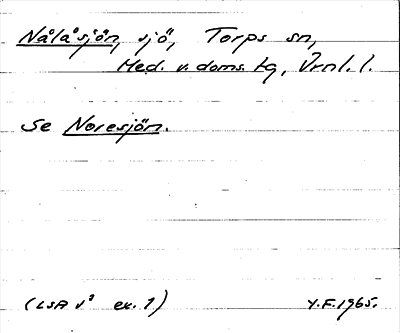 Nålåsjön, sjö, Torps sn,
Med. v. doms. tg, Vrml. l.
Se Noresjön.
(LSA v³ ex. 1) Y.F. 1965.